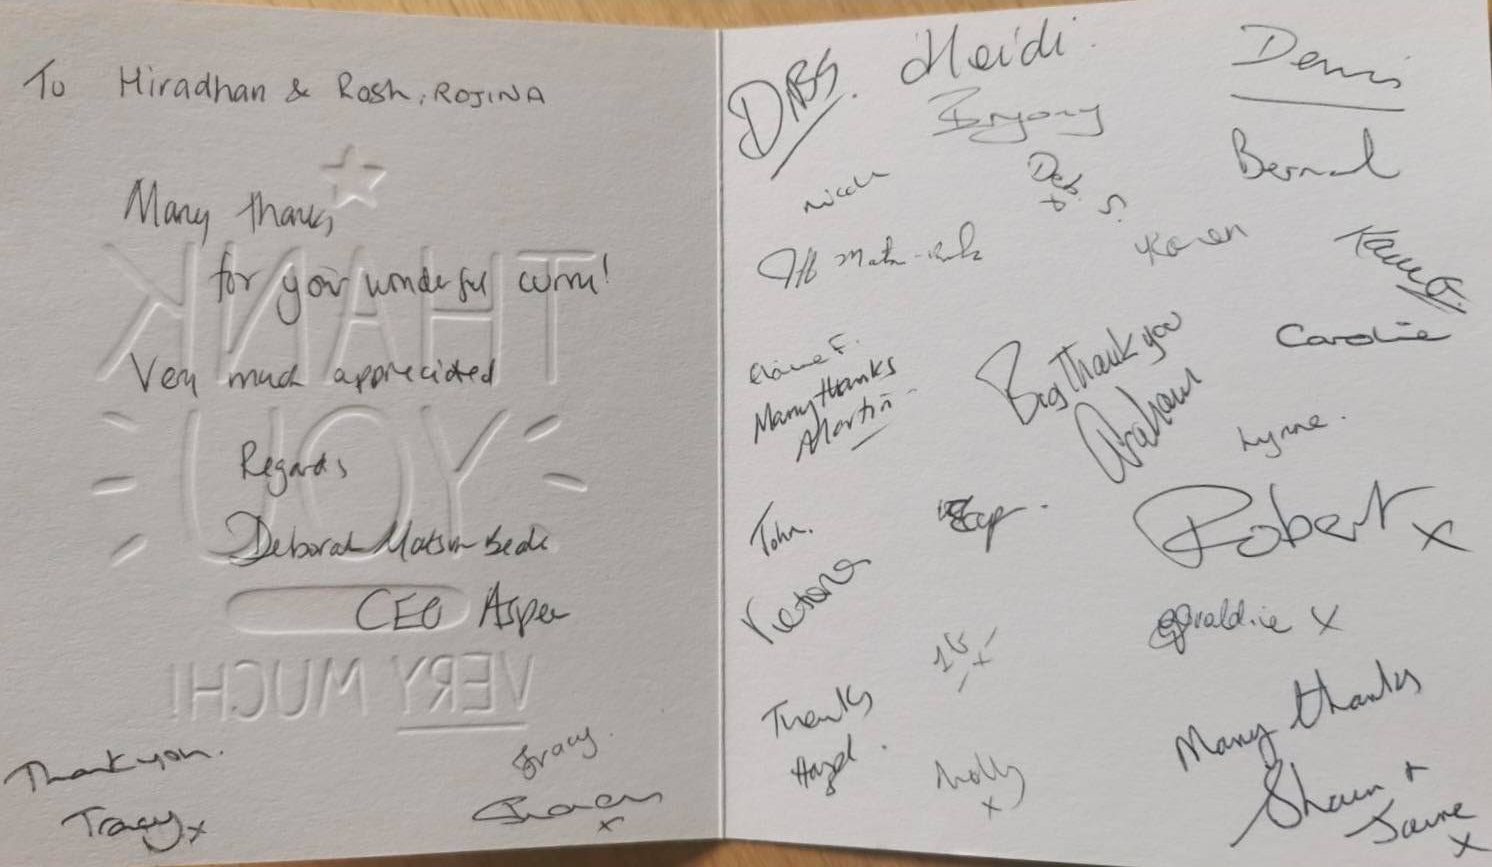 To Hiradhan & Rosh, ROJINA
Many thanks
for your wonderful curry!
Very much appreciated
Regards
Deborah
CEO Aspen
THANK
YOU
VERY MUCH!
Thank you.
Tracy x
Tracy.
Sharon
x
DABS.
Heidi.
Denni
Bryony
Bernard
Nicola
Deb. S.
x
Karen
Karen G.
Elaine F.
Many thanks
Martin
Big Thank you
Graham
Caroline
Lynne.
John.
Robert x
Victoria
Geraldine x
Thanks
Hazel.
Molly
x
Many thanks
Shaun +
Jayne
x